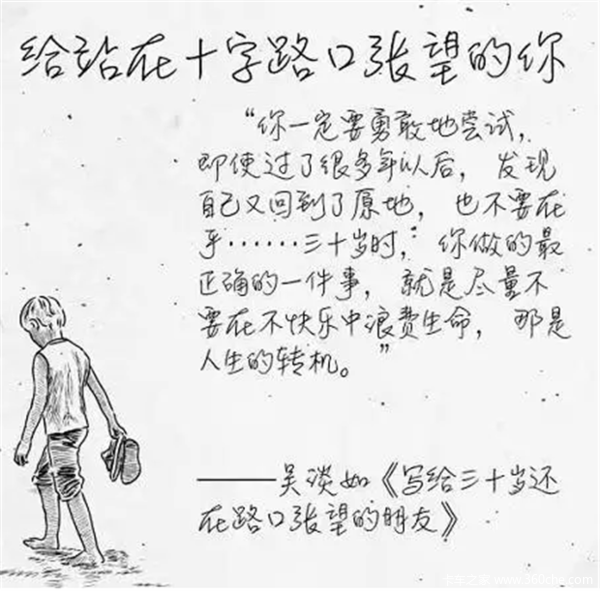 给站在十字路口张望的你
“你一定要勇敢地尝试，
即使过了很多年以后，发现
自己又回到了原地，也不要在
乎……三十岁时，你做的最
正确的一件事，就是尽量不
要在不快乐中浪费生命，那是
人生的转机。”
——吴淡如《写给三十岁还
在路口张望的朋友》
www.360che.com